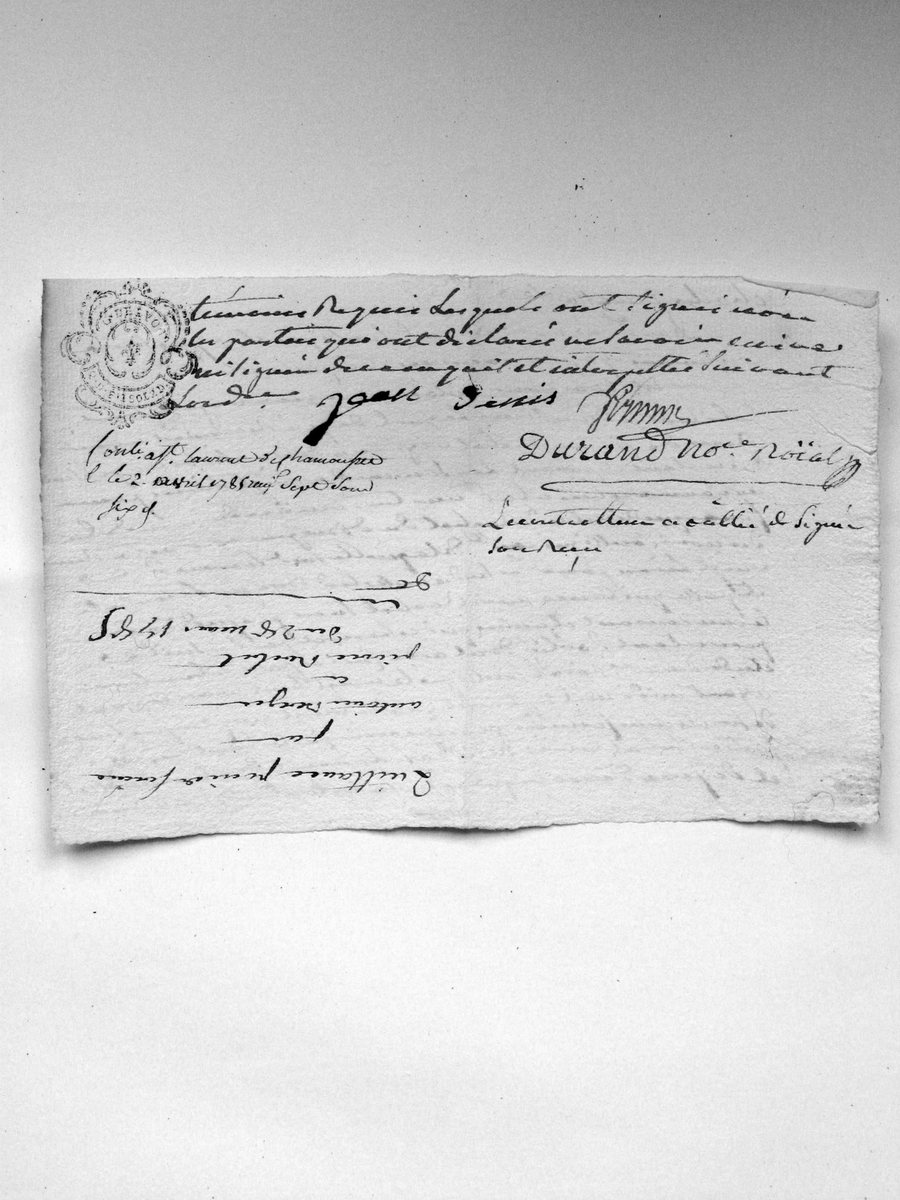 témoins Requis Lesquels ont signé non
les parties qui ont declaré ne savoir écrire
ni signer de ce enquis et interpellés suivant
Lord.ce
jean Denis
Durand No.re Roïal
Con.lé à St. laurent de chamousset
le 2. avril 1785 reçu Sept sous
six d.
Le controlleur a oublié de signer
son Reçu
Quittance
par
antoine
a
pierre
du 28 mars 1785